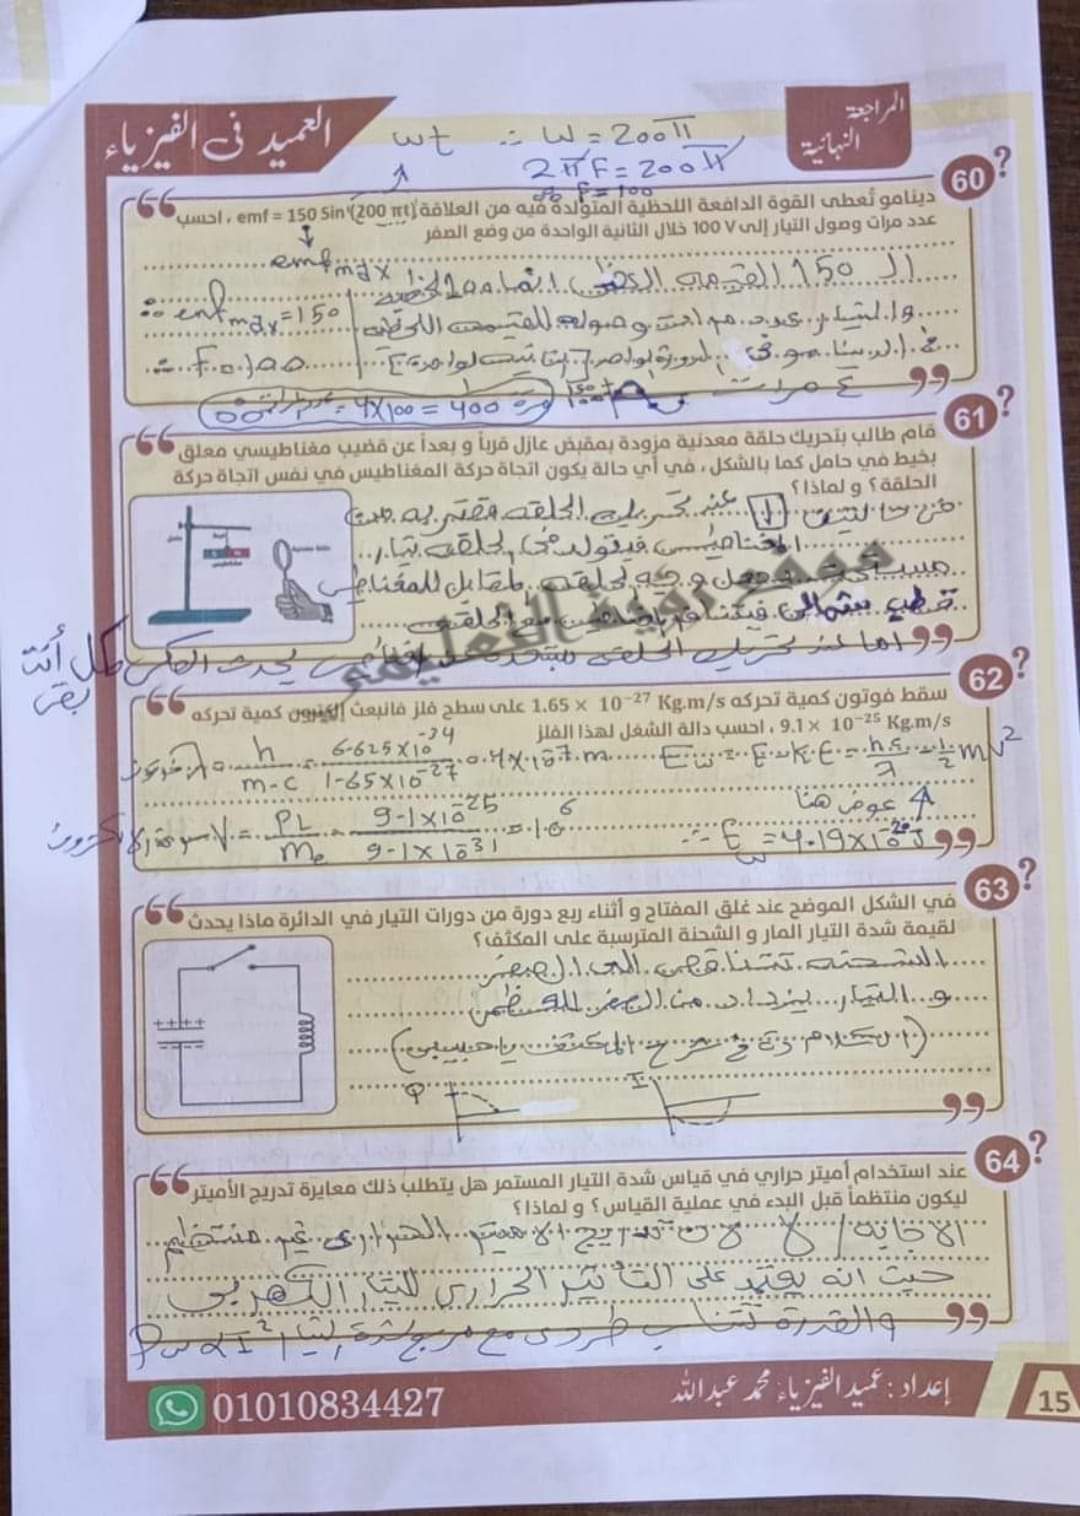 المراجعة
النهائية
العميد فى الفيزياء
wt ∴ W = 200π
2πF = 200π
∴ F = 100
60
ديناموتُعطى القوة الدافعة اللحظية المتولدة فيه من العلاقة emf = 150 Sin (200 πt) ، احسب
عدد مرات وصول التيار إلى 100 V خلال الثانية الواحدة من وضع الصفر
emf max
الـ 150 القيمه العظمى
∴ emf max = 150
∴ F = 100
4 مرات
= 4x100 = 400 مرة
61
قام طالب بتحريك حلقة معدنية مزودة بمقبض عازل قرباً و بعداً عن قضيب مغناطيسي معلق
بخيط في حامل كما بالشكل ، في أي حالة يكون اتجاة حركة المغناطيس في نفس اتجاة حركة
الحلقة؟ و لماذا؟
عند تحريك الحلقه مقتربه من
المغناطيس فيتولد فى الحلقه تيار
مستحث يجعل وجه الحلقه المقابل للمغناطيس
قطب شمالى فيتنافر المغناطيس مع الحلقه
اما عند تحريك الحلقه مبتعدة يحدث العكس
موقع رؤية التعليمي
62
سقط فوتون كمية تحركه 1.65 × 10⁻²⁷ Kg.m/s على سطح فلز فانبعث إلكترون كمية تحركه
9.1 × 10⁻²⁵ Kg.m/s ، احسب دالة الشغل لهذا الفلز
λ فوتون = h / m.c = 6.625x10⁻³⁴ / 1.65x10⁻²⁷ = 0.4x10⁻⁷ m Ew = E - K.E = hc/λ - 1/2 mv²
عوض هنا
V = PL / me = 9.1x10⁻²⁵ / 9.1x10⁻³¹ = 10⁶
∴ Ew = 4.19x10⁻²⁰ J
63
في الشكل الموضح عند غلق المفتاح و أثناء ربع دورة من دورات التيار في الدائرة ماذا يحدث
لقيمة شدة التيار المار و الشحنة المترسبة على المكثف؟
الشحنه تتناقص الى الصفر
و التيار يزداد من الصفر للعظمى
(الكلام دة فى شرح المكثف يا حبيبى)
Q I
64
عند استخدام أميتر حراري في قياس شدة التيار المستمر هل يتطلب ذلك معايرة تدريج الأميتر
ليكون منتظماً قبل البدء في عملية القياس؟ و لماذا؟
الاجابه / لا لان تدريج الاميتر الحرارى غير منتظم
حيث انه يعتمد على التأثير الحرارى للتيار الكهربى
والقدرة تتناسب طردى مع مربع شدة التيار Pw α I²
01010834427
إعداد : عميد الفيزياء محمد عبدالله
15